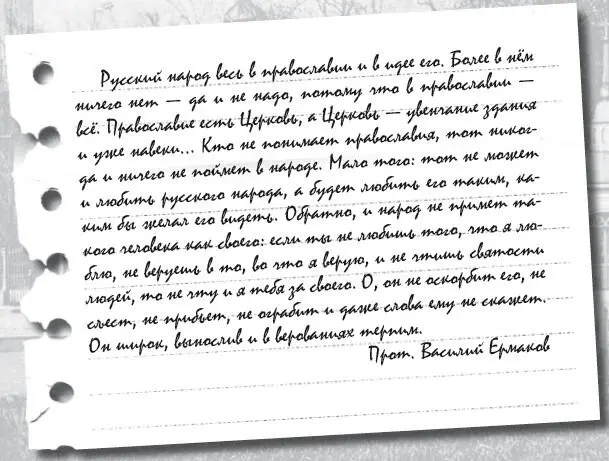 Русский народ весь в православии и в идее его. Более в нём
ничего нет — да и не надо, потому что в православии —
всё. Православие есть Церковь, а Церковь — увенчание здания
и уже навеки... Кто не понимает православия, тот никог-
да и ничего не поймет в народе. Мало того: тот не может
и любить русского народа, а будет любить его таким, ка-
ким бы желал его видеть. Обратно, и народ не примет та-
кого человека как своего: если ты не любишь того, что я лю-
блю, не веруешь в то, во что я верую, и не чтишь святости
людей, то не чту и я тебя за своего. О, он не оскорбит его, не
съест, не прибьет, не ограбит и даже слова ему не скажет.
Он широк, вынослив и в верованиях терпим.
Прот. Василий Ермаков